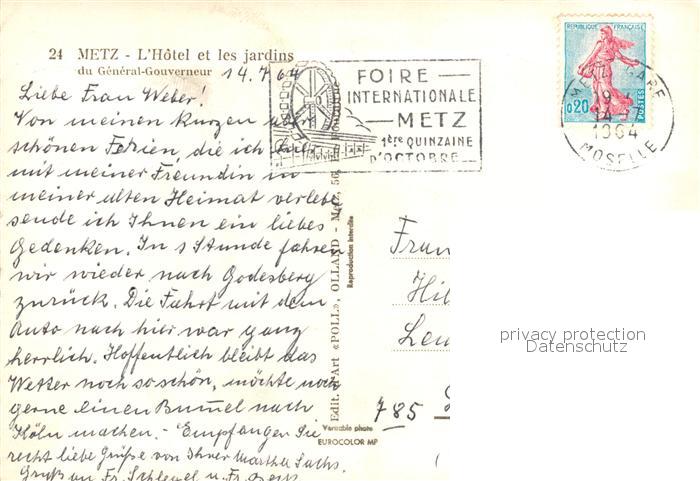 24 METZ - L'Hôtel et les jardins
du Général-Gouverneur
14.7.64
Liebe Frau Weber!
Von meinen kurzen aber
schönen Ferien, die ich hier
mit meiner Freundin in
meiner alten Heimat verlebe
sende ich Ihnen ein liebes
Gedenken. In 1 Stunde fahren
wir wieder nach Godesberg
zurück. Die Fahrt mit dem
Auto nach hier war ganz
herrlich. Hoffentlich bleibt das
Wetter noch so schön, möchte noch
gerne einen Bummel nach
Köln machen. - Empfangen Sie
recht liebe Grüße von Ihrer Martha Sachs.
Gruß an Fr. Schlegel u. Fr.
FOIRE
INTERNATIONALE
METZ
1ère QUINZAINE
D'OCTOBRE
REPUBLIQUE FRANÇAISE
0,20
POSTES
METZ GARE
19
14-7
1964
MOSELLE
Edit. d'Art «POLL», OLLAND - Metz, 56,
Reproduction interdite
Frau
Hil
Leu
785
Véritable photo
EUROCOLOR MP
privacy protection
Datenschutz